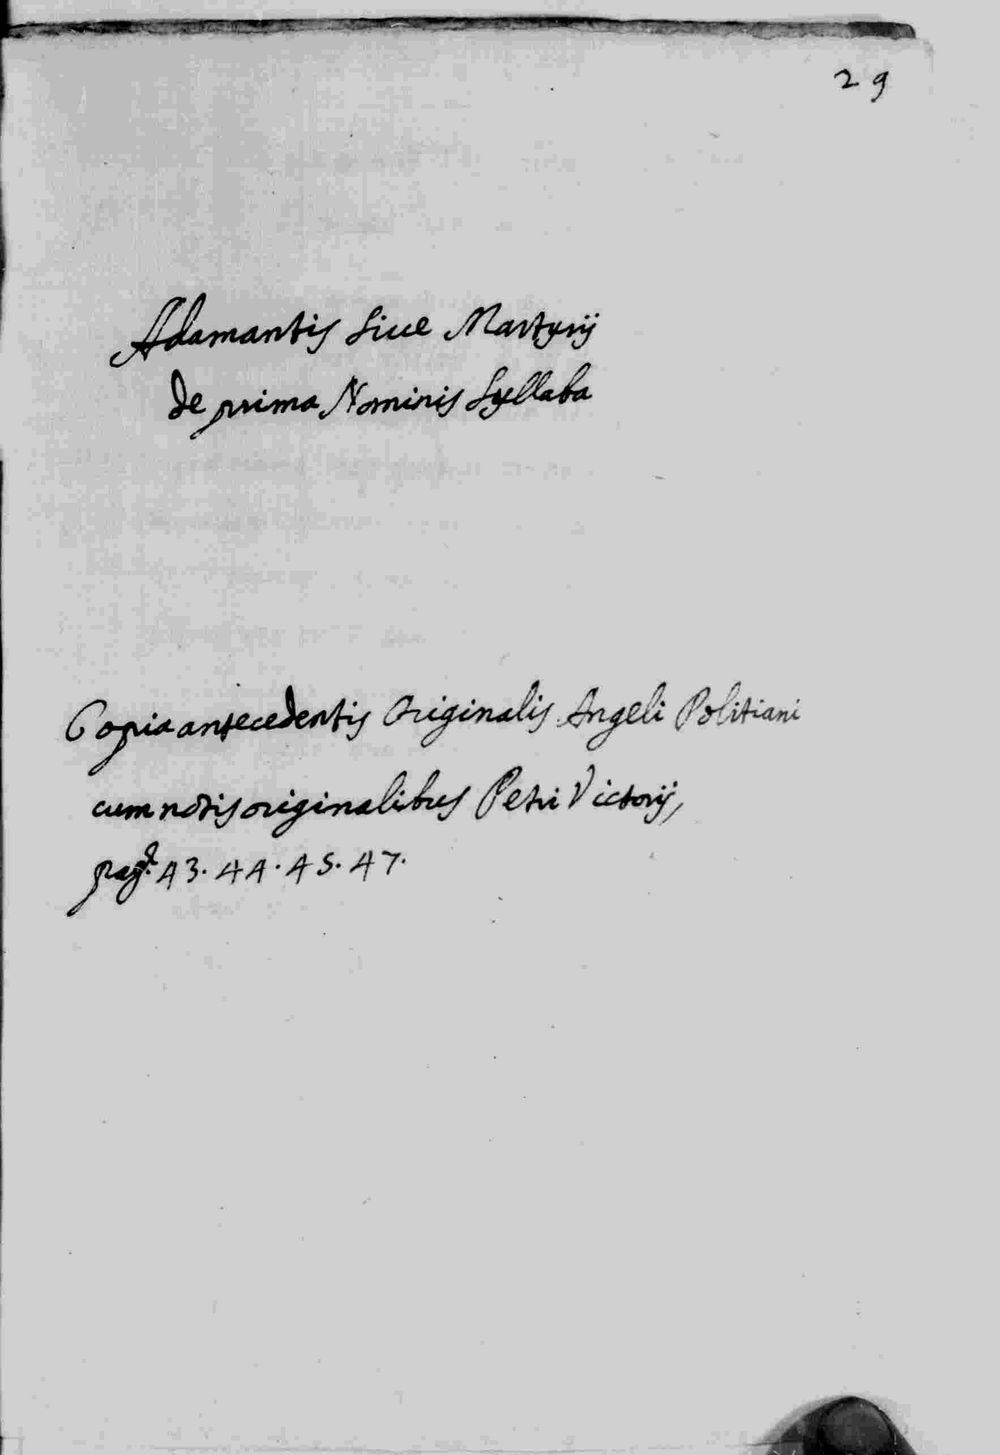 29
Adamantis siue Martyrij
de prima Nominis Syllaba
Copia antecedentis Originalis Angeli Politiani
cum notis originalibus Petri Victorij,
pag. 43. 44. 45. 47.